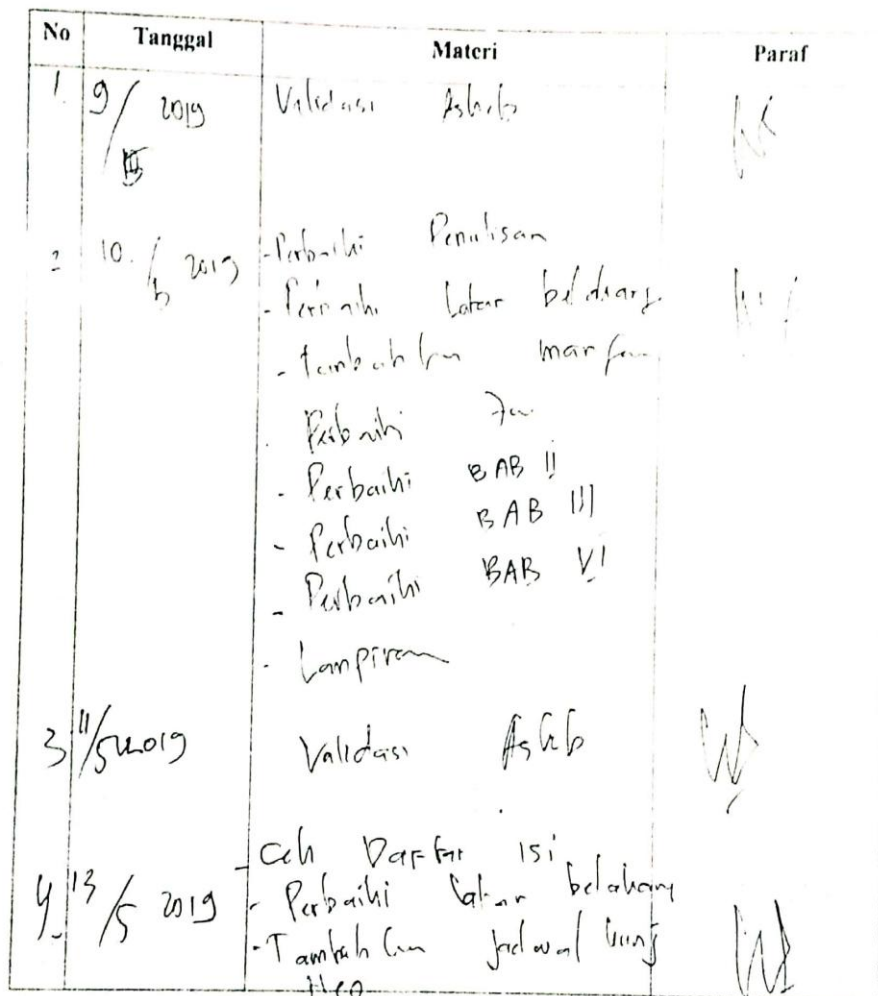 No Tanggal Materi Paraf
1. 9/III 2019 Validasi Askeb
2 10. / 2019 -Perbaiki Penulisan
- Perbaiki latar belakang
- Tambahkan
- Perbaiki
- Perbaiki BAB II
- Perbaiki BAB III
- Perbaiki BAB VI
- Lampiran
3 11/5 2019 Validasi Askeb
- Cek Daftar isi
4. 13/5 2019 - Perbaiki latar belakang
- Tambahkan jadwal kunj
neo